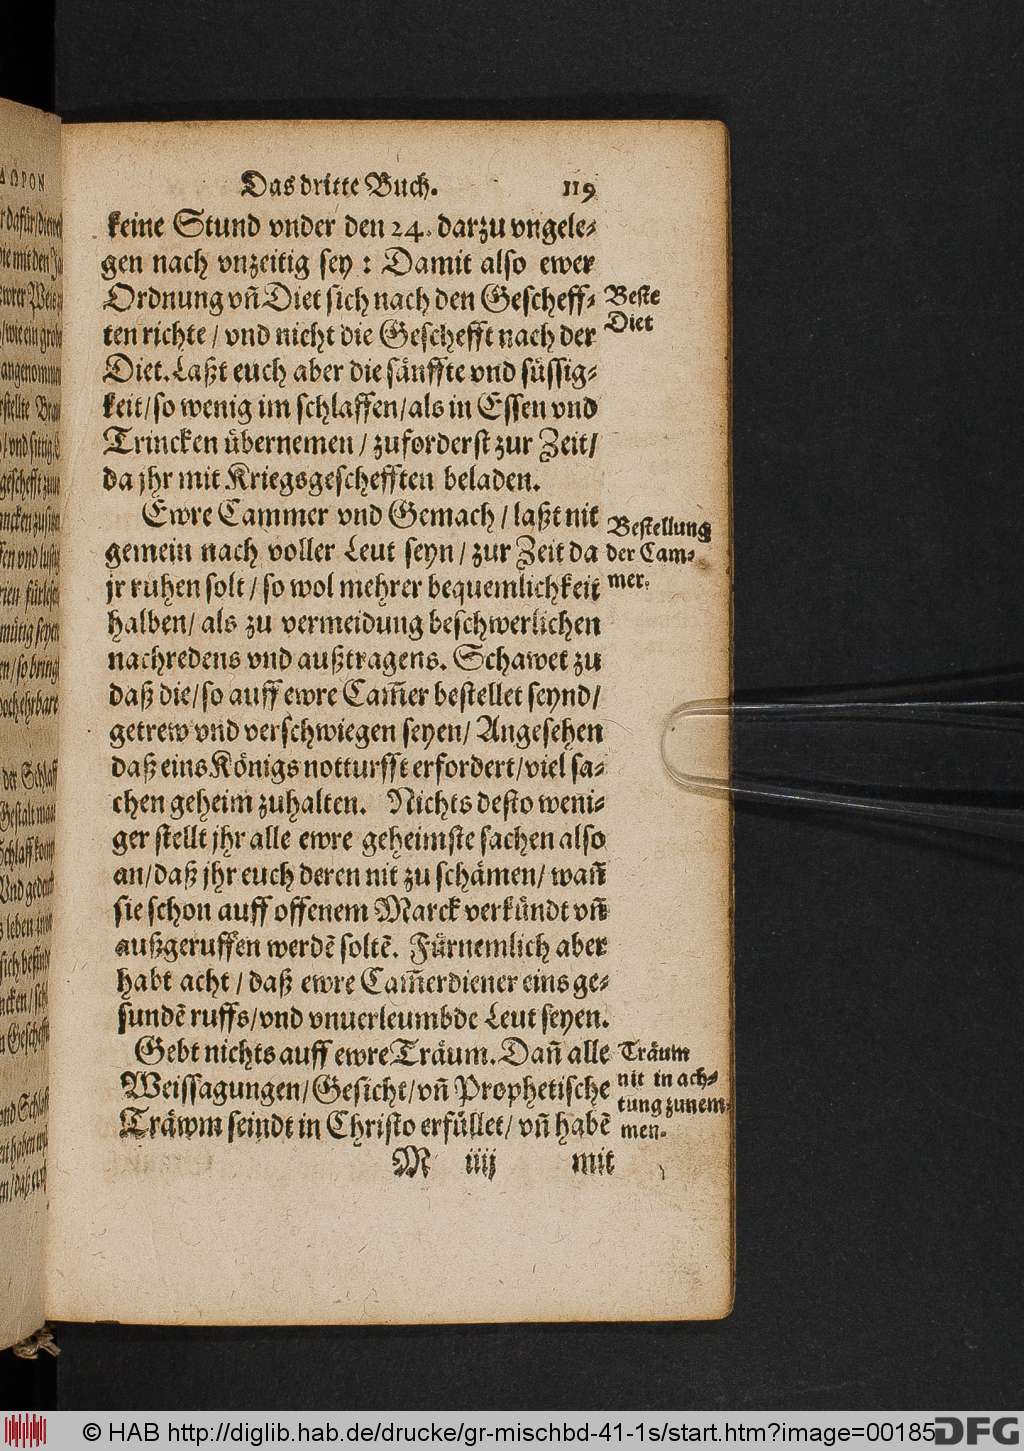 Das dritte Buch. 119
keine Stund vnder den 24. darzu vngele-
gen nach vnzeitig sey : Damit also ewer
Ordnung vñ Diet sich nach den Gescheff-
ten richte / vnd nicht die Geschefft nach der
Diet. Laßt euch aber die sänffte vnd süssig-
keit/ so wenig im schlaffen/ als in Essen vnd
Trincken übernemen / zuforderst zur Zeit/
da jhr mit Kriegsgeschefften beladen.
Beste
Diet
Ewre Cammer vnd Gemach / laßt nit
gemein nach voller Leut seyn / zur Zeit da
jr ruhen solt / so wol mehrer bequemlichkeit
halben/ als zu vermeidung beschwerlichen
nachredens vnd außtragens. Schawet zu
daß die/ so auff ewre Cam̃er bestellet seynd/
getrew vnd verschwiegen seyen/ Angesehen
daß eins Königs notturfft erfordert/ viel sa-
chen geheim zuhalten. Nichts desto weni-
ger stellt jhr alle ewre geheimste sachen also
an/ daß jhr euch deren nit zu schämen/ wañ
sie schon auff offenem Marck verkündt vñ
außgeruffen werdẽ soltẽ. Fürnemlich aber
habt acht / daß ewre Cam̃erdiener eins ge-
sundẽ ruffs/ vnd vnuerleumbde Leut seyen.
Bestellung
der Cam-
mer.
Gebt nichts auff ewre Träum. Dañ alle
Weissagungen/ Gesicht/ vñ Prophetische
Träwm seindt in Christo erfüllet/ vñ habẽ
Träum
nit in ach-
tung zunem-
men.
M iiij mit
ΔΩΡΟΝ
© HAB http://diglib.hab.de/drucke/gr-mischbd-41-1s/start.htm?image=00185
DFG